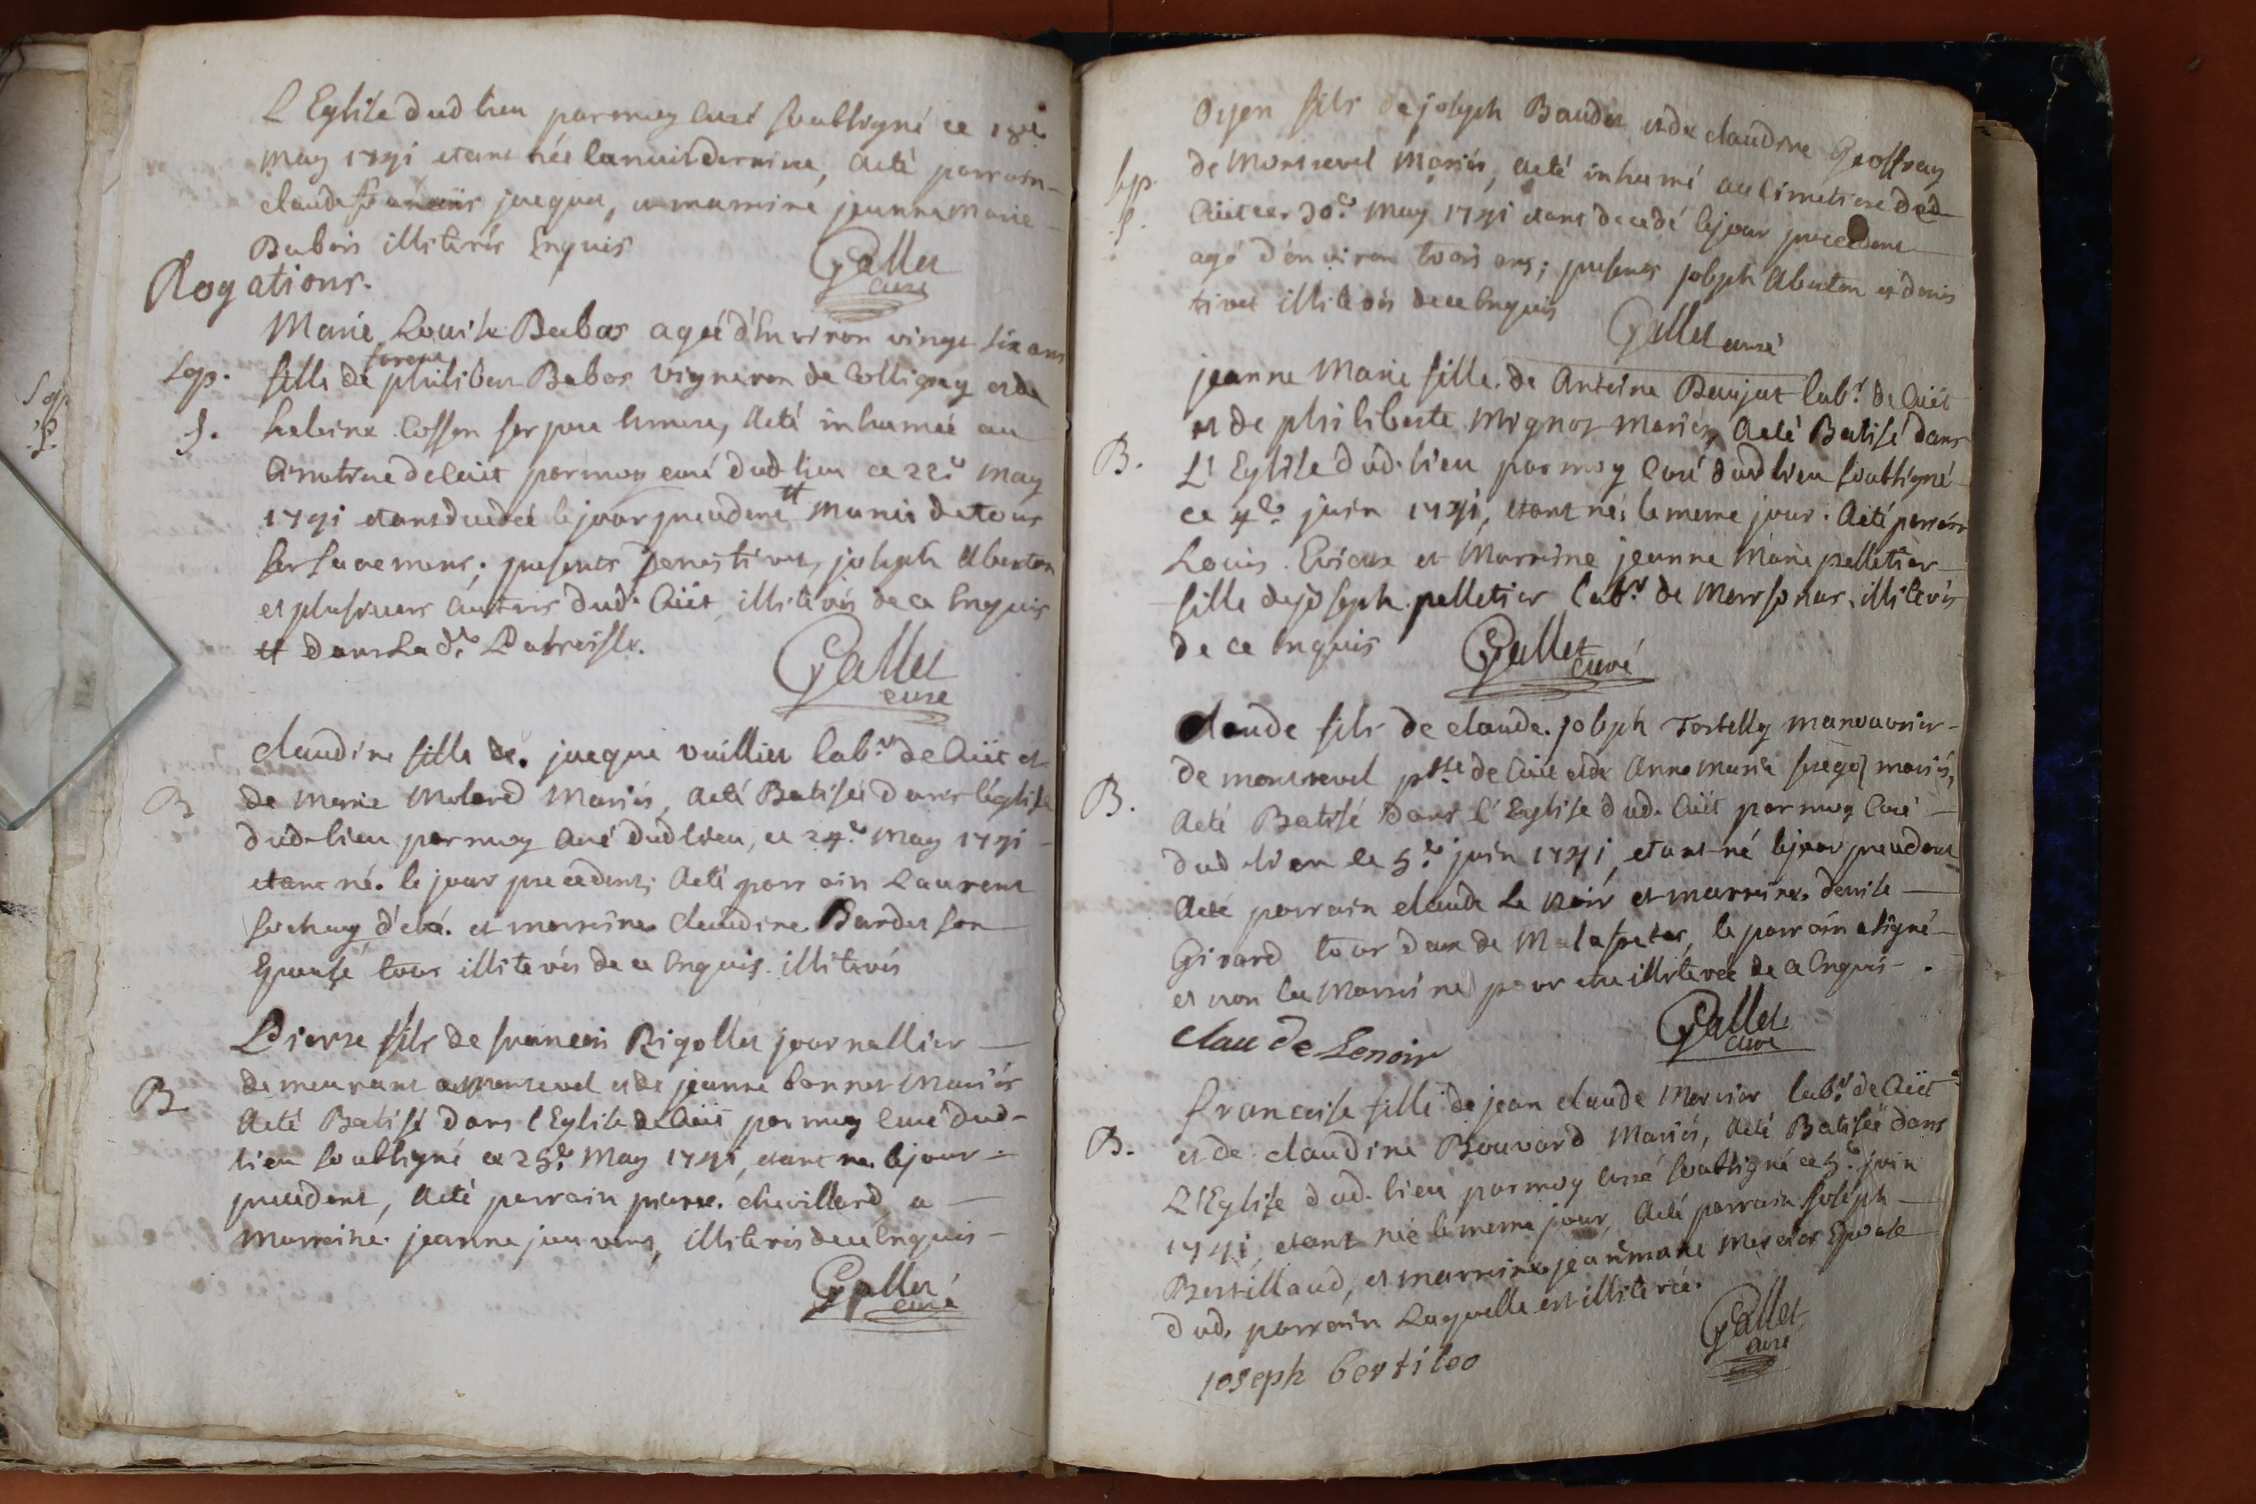 L'Eglise dud. lieu par moy curé soubsigné ce 18.e
may 1791 etant née la nuit derniere, a eté parrain
claude françois jacquet, et marraine jeanne marie
Babois illiterés Enquis
Gallet
curé
Rogations.
Marie Louise Babos ageé d'Environ vingt six ans
Sep.
fille de philibert Babos vigneron de Colligny et de
g.
Cosson ses pere et mere, a eté inhumée au
Cimetiere de Cuet par moy curé dud. lieu ce 22.e may
1791 etant decedée le jour precedent # Munie de tous
ses sacremens; presents Denis tivet, joseph Aberton
et plusieurs autres dud. Cuët illiterés de ce Enquis
# dans lad.e Paroisse.
Gallet
curé
claudine fille de jacque vuillier lab.r de Cuët et
B
de Marie Molard Mariés, a eté Batisée dans l'église
dud. lieu par moy curé dud. lieu, ce 24.e May 1791
etant né le jour precedent; a eté parrain Laurent
Sochay d'eté. et marraine claudine Bardet son
Epouse tous illiterés de ce Enquis illiterés
Pierre fils de francois Rigollet journallier
B
demeurant a Montrevel et de jeanne bonnet Mariés
a eté Batisé dans l'Eglise de Cuët par moy curé dud.
lieu soubsigné ce 25.e May 1791, etant né le jour
precedent, a eté parrain pierre chevillard, et
marraine jeanne, illiterés de ce Enquis
Gallet
curé
fils de joseph Baudet et de claudine Geoffray
Sep.
de Montrevel Mariés, a eté inhumé au Cimetiere dud.
g.
Cuët ce 30.e May 1791 etant decedé le jour precedent
agé d'environ trois ans; presents joseph Aberton et denis
tivet illiterés de ce Enquis
Gallet curé
jeanne Marie fille de Antoine Baujat lab.r de Cuët
et de philiberte Mignot Mariés, a eté Batisé dans
B.
L'Eglise dud. lieu par moy Curé dud. lieu soubsigné
ce 4.e juin 1791, etant née le meme jour. a eté parrain
Louis et Marraine jeanne Marie pelletier
fille de joseph pelletier lab.r de Marsonas illiterés
de ce Enquis
Gallet
curé
claude fils de claude joseph Tortilly manouvrier
de montrevel p.sse de Cuët et de Anne Marie mariés,
B.
a eté Batisé dans l'Eglise dud. Cuët par moy Curé
dud. lieu le 5.e juin 1791, etant né le jour precedent
a eté parrain claude Le noir et marraine denise
Girard tour deux de Malafretas, le parrain a signé
et non la Marraine pour etre illiterée de ce Enquis.
Claude Lenoir
Gallet
curé
francoise fille de jean claude Mercier lab.r de Cuët
B.
et de claudine Bouvard Mariés, a eté Batisée dans
L'Eglise dud. lieu par moy curé soubsigné ce 5.e juin
1791, etant née le meme jour, a eté parrain joseph
Bertillaud, et marraine jeanne marie Mercier Epouse
dud. parrain Laquelle est illiterée.
Gallet
curé
joseph bertiloo